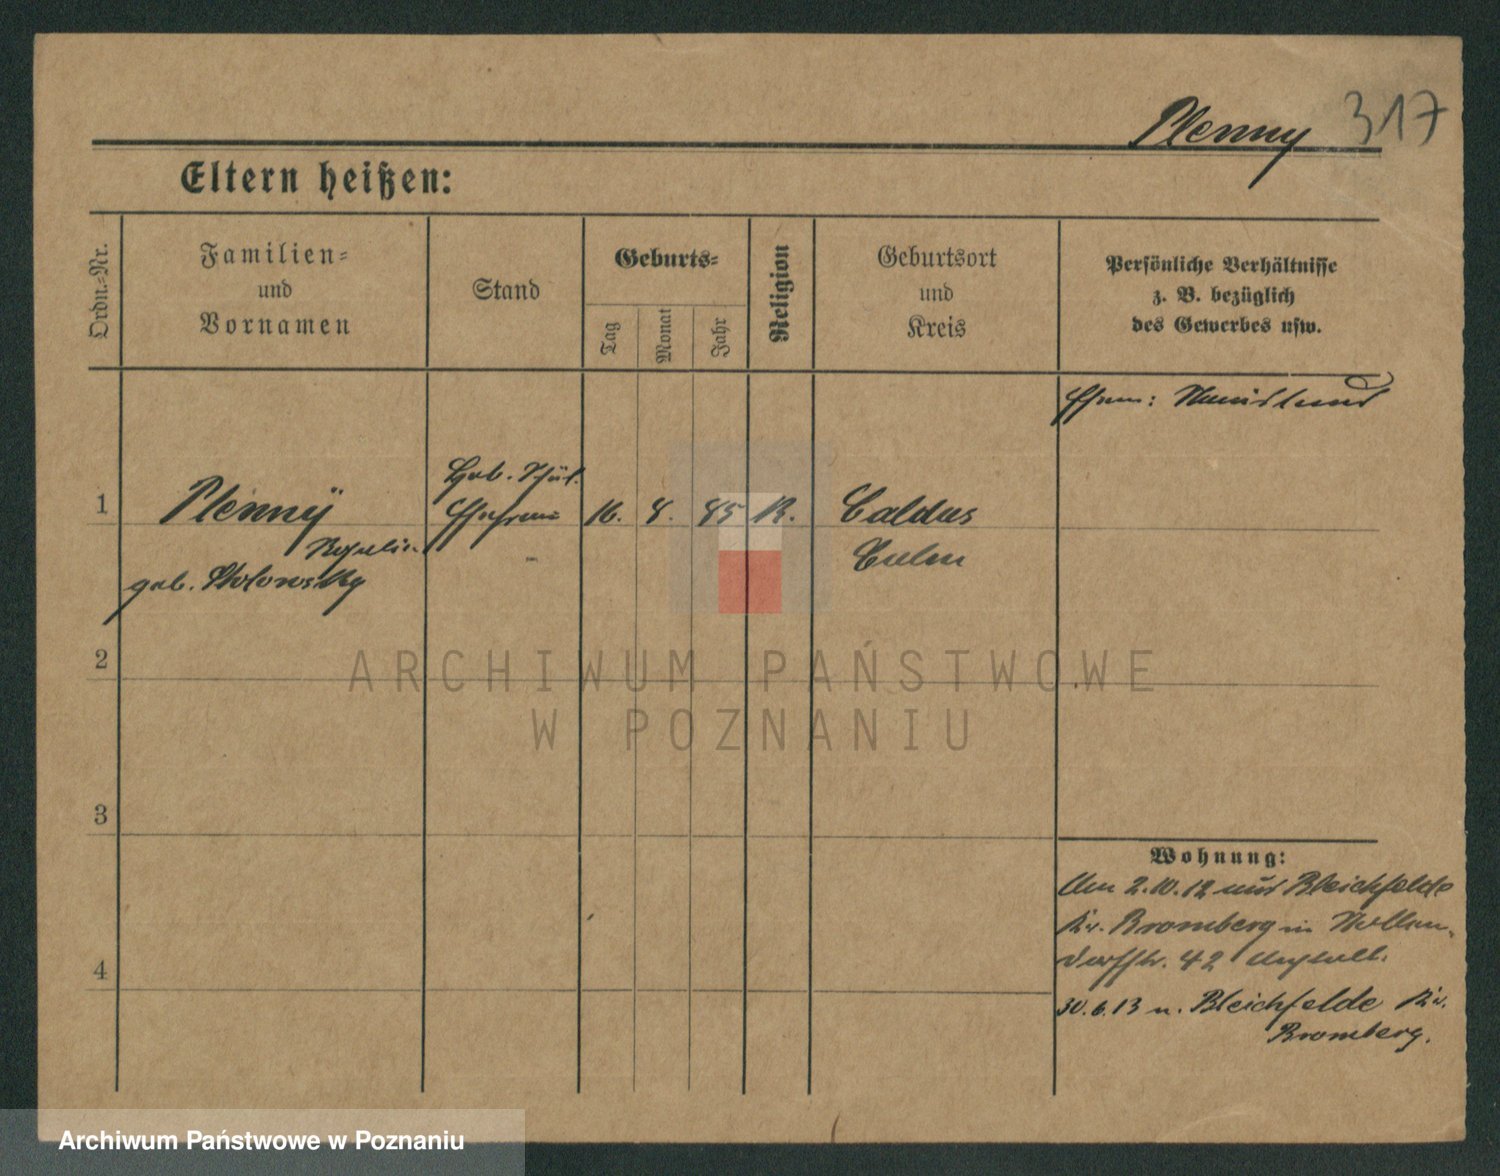 Plenny 317
Eltern heißen:
Ordn.-Nr.
Familien-
und
Vornamen
Stand
Geburts-
Tag
Monat
Jahr
Religion
Geburtsort
und
Kreis
Persönliche Verhältnisse
z. B. bezüglich
des Gewerbes usw.
1
Plenny
geb.
Ehefrau
16. 8. 85 K.
Caldus
Culm
2
3
4
Wohnung:
Am 2.10.12 aus Bleichfelde
Kr. Bromberg in Nollen-
dorfstr. 42
30.6.13 n. Bleichfelde Kr.
Bromberg.
ARCHIWUM PAŃSTWOWE
W POZNANIU
Archiwum Państwowe w Poznaniu